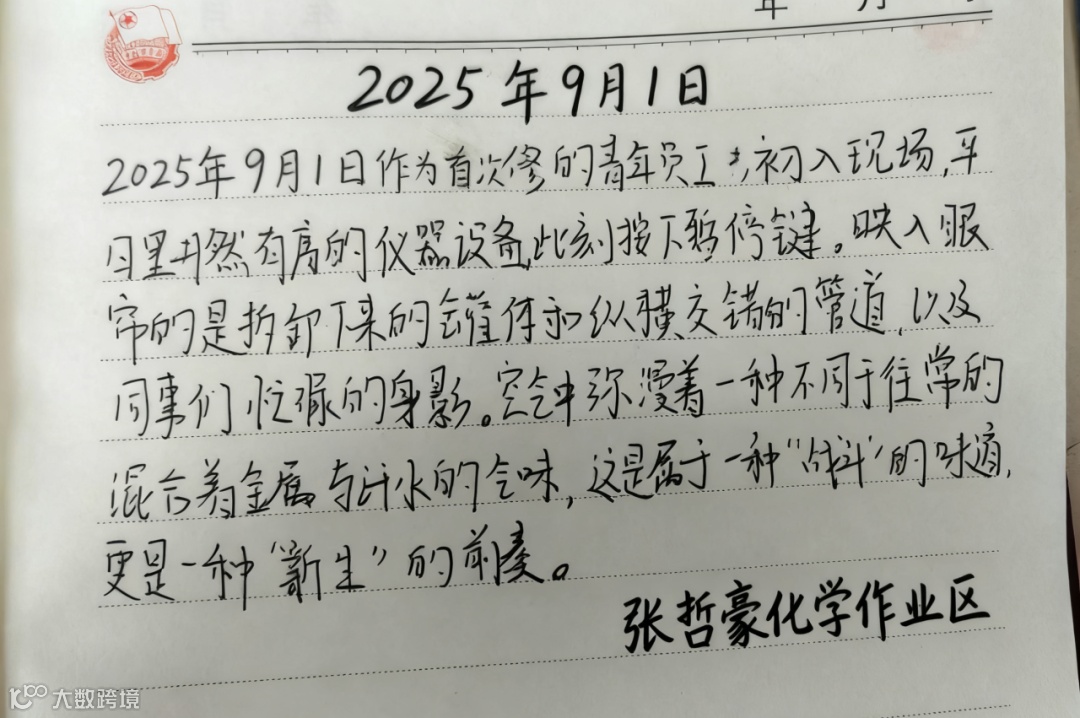 年 月
2025年9月1日
2025年9月1日作为首次修的青年员工,初入现场,平
日里井然有序的仪器设备,此刻按下暂停键。映入眼
帘的是拆卸下来的罐体和纵横交错的管道,以及
同事们忙碌的身影。空气中弥漫着一种不同于往常的
混合着金属与汗水的气味,这是属于一种“战斗”的味道,
更是一种“新生”的前奏。
张哲豪化学作业区
大数跨境